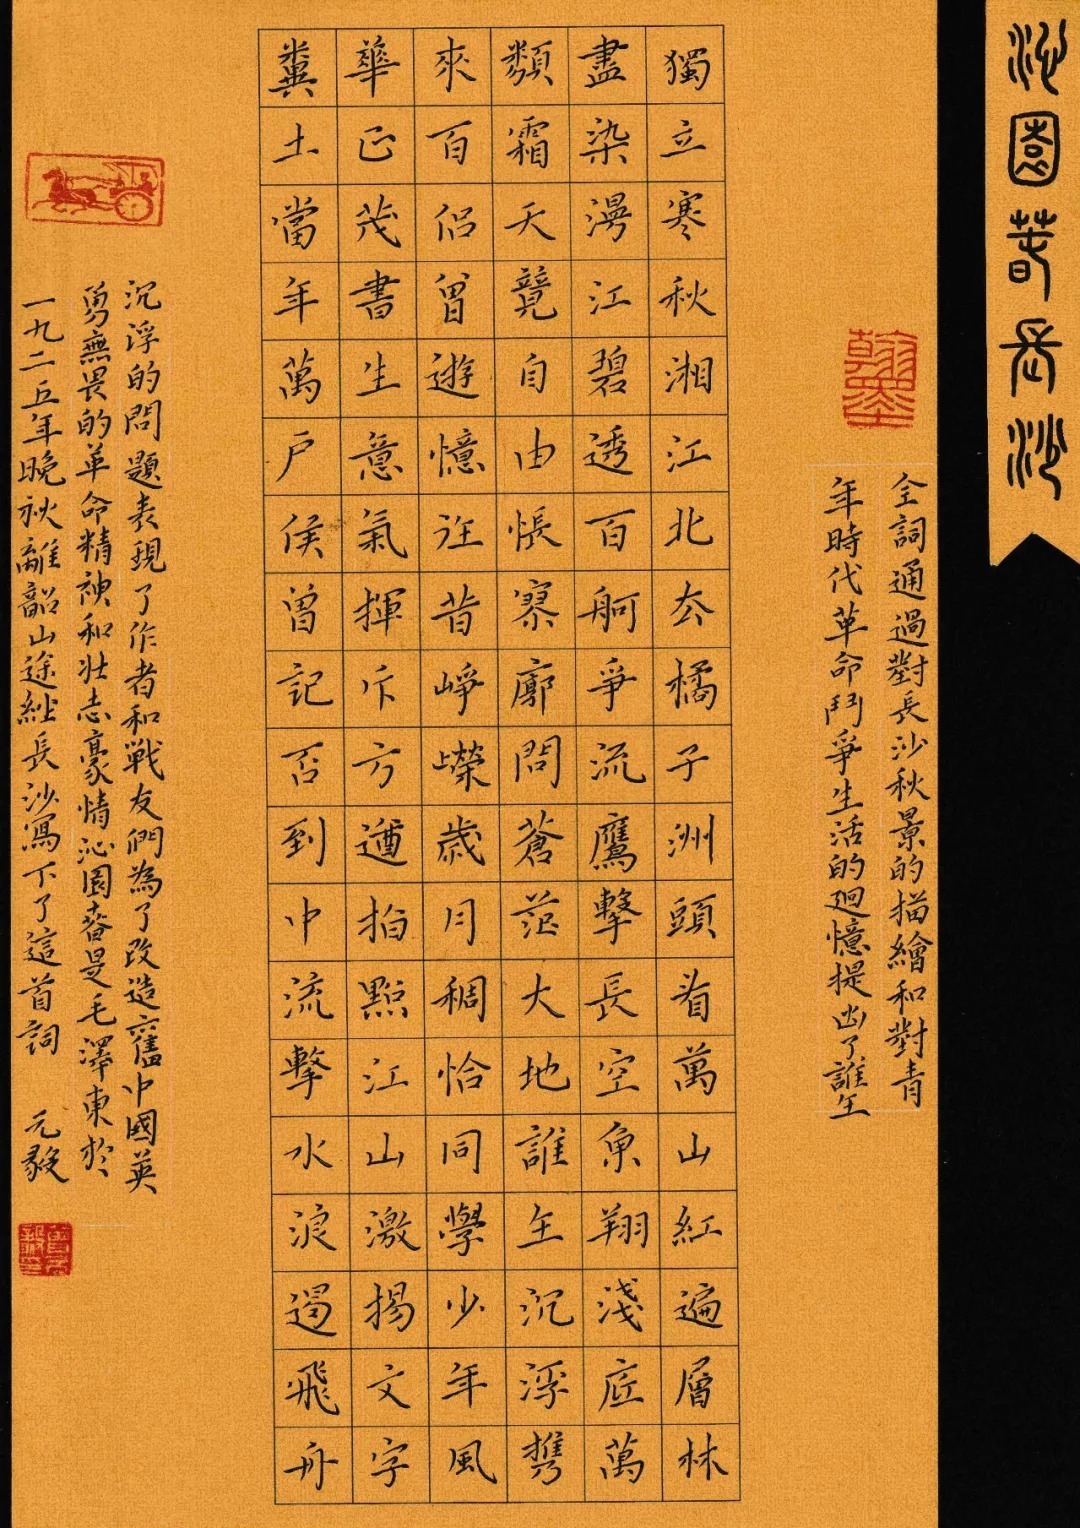 沁園春長沙
翰墨
全詞通過對長沙秋景的描繪和對青
年時代革命鬥爭生活的迴憶提出了誰主
獨立寒秋湘江北去橘子洲頭看萬山紅遍層林
盡染漫江碧透百舸爭流鷹擊長空魚翔淺底萬
類霜天競自由悵寥廓問蒼茫大地誰主沉浮携
來百侶曾遊憶往昔崢嶸歲月稠恰同學少年風
華正茂書生意氣揮斥方遒指點江山激揚文字
糞土當年萬戶侯曾記否到中流擊水浪遏飛舟
沉浮的問題表現了作者和戰友們為了改造舊中國英
勇無畏的革命精神和壯志豪情沁園春是毛澤東於
一九二五年晚秋離韶山途經長沙寫下了這首詞 元毅